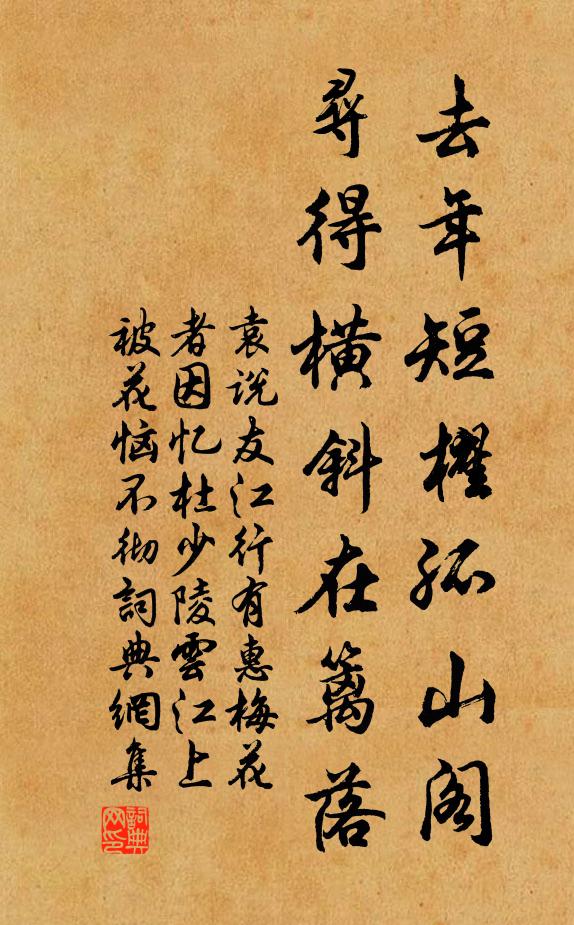 去年短櫂孤山閣
尋得橫斜在篱落
袁说友江行有惠梅花
者因忆杜少陵雲江上
被花恼不彻詞典網集
詞典网印